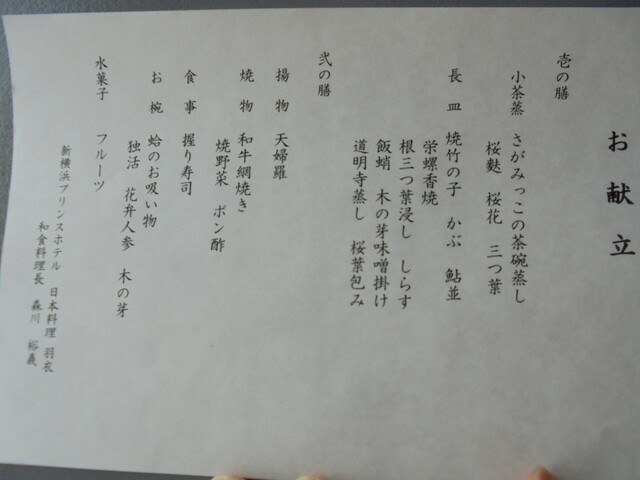 お献立
壱の膳
小茶蒸 さがみっこの茶碗蒸し
桜麩 桜花 三つ葉
長皿 焼竹の子 かぶ 鮎並
栄螺香焼
根三つ葉浸し しらす
飯蛸 木の芽味噌掛け
道明寺蒸し 桜葉包み
弐の膳
揚物 天婦羅
焼物 和牛網焼き
焼野菜 ポン酢
食事 握り寿司
お椀 蛤のお吸い物
独活 花弁人参 木の芽
水菓子 フルーツ
新横浜プリンスホテル 日本料理 羽衣
和食料理長 森川 裕義